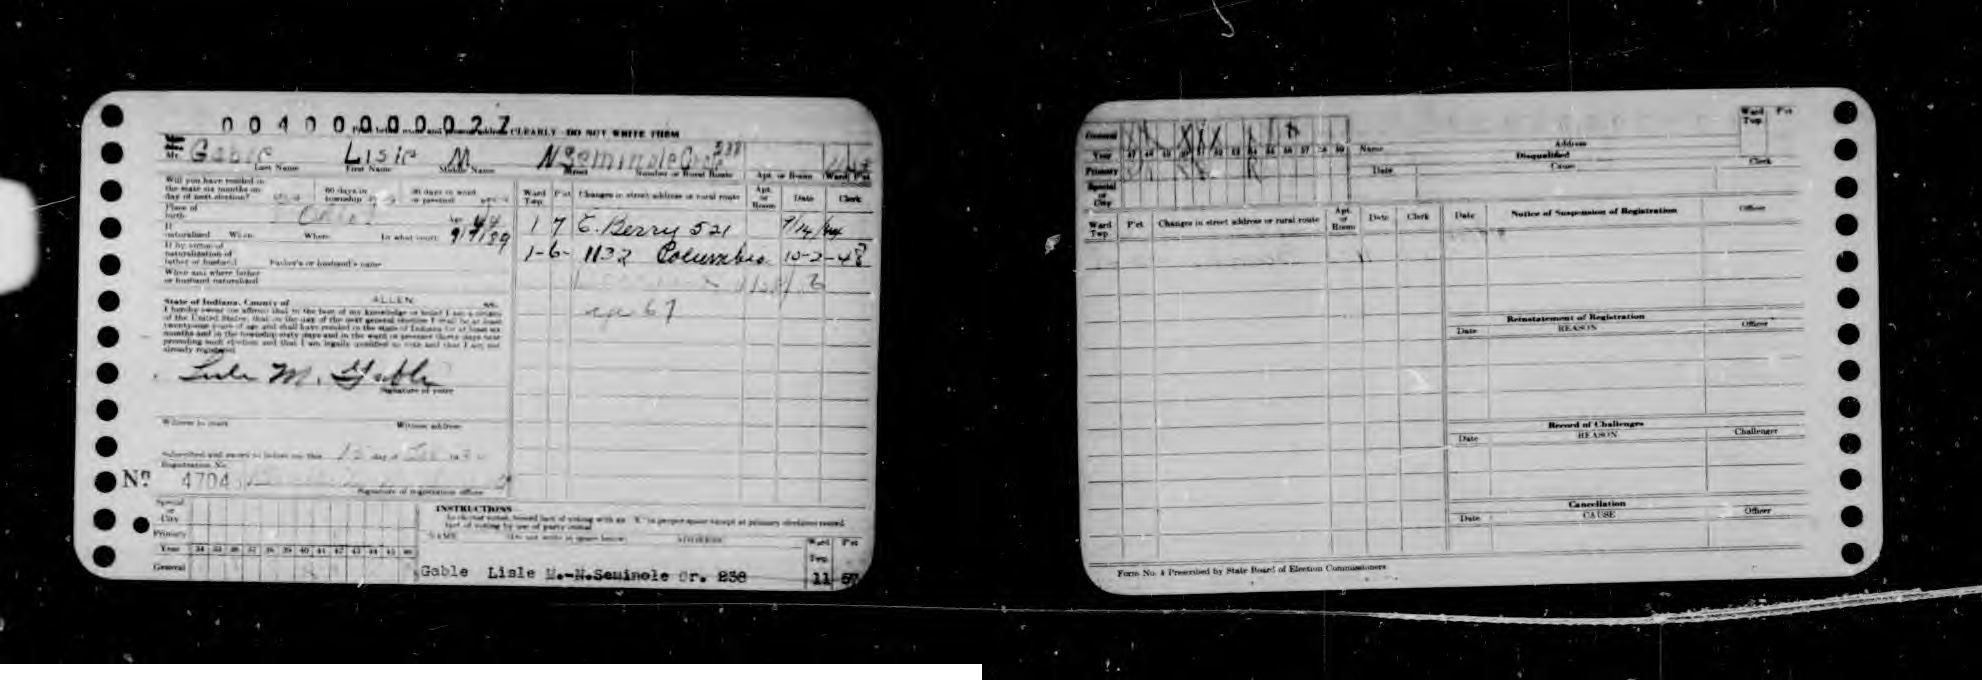 00400000027
Print below name and present address CLEARLY DO NOT WRITE THEM
Mr. Gable Lisle M. N Seminole Circle 238
Last Name First Name Middle Name Street Number or Rural Route Apt. or Room Ward P'ct
Will you have resided in
the state six months on
day of next election? yes
60 days in
township yes
30 days in ward
or precinct yes
Place of
birth Ohio
Age 44
9/7/89
If
naturalized When Where In what court
If by virtue of
naturalization of
father or husband Father's or husband's name
When and where father
or husband naturalized
State of Indiana, County of ALLEN ss.
I hereby swear (or affirm) that to the best of my knowledge or belief I am a citizen
of the United States; that on the day of the next general election I shall be at least
twenty-one years of age and shall have resided in the state of Indiana for at least six
months and in the township sixty days and in the ward or precinct thirty days next
preceding such election and that I am legally qualified to vote and that I am not
already registered
Lisle M. Gable
Signature of voter
Witness to mark Witness address
Subscribed and sworn to before me this 12 day of
Registration No.
No 4704
Signature of registration officer
Ward Twp. P'ct Changes in street address or rural route Apt. or Room Date Clerk
1 7 E. Berry 521 9/14/
1-6- 1132 Columbia 10-2-48
67
Special
or
City
Primary
Year 34 35 36 37 38 39 40 41 42 43 44 45 46
General
INSTRUCTIONS
To record voted, record fact of voting with an "X" in proper space except at primary elections record
fact of voting by use of party initial
NAME (Do not write in space below) ADDRESS
Ward Twp. P'ct
Gable Lisle M.-N.Seminole Cr. 238 11 57
General
Year 47 48 49 50 51 52 53 54 55 56 57 58 59
Primary
Special
or
City
Name Address
Ward
Twp.
P'ct
Disqualified
Date Cause Clerk
Ward Twp. P'ct Changes in street address or rural route Apt. or Room Date Clerk
Date Notice of Suspension of Registration Officer
Reinstatement of Registration
Date REASON Officer
Record of Challenges
Date REASON Challenger
Cancellation
Date CAUSE Officer
Form No. 4 Prescribed by State Board of Election Commissioners